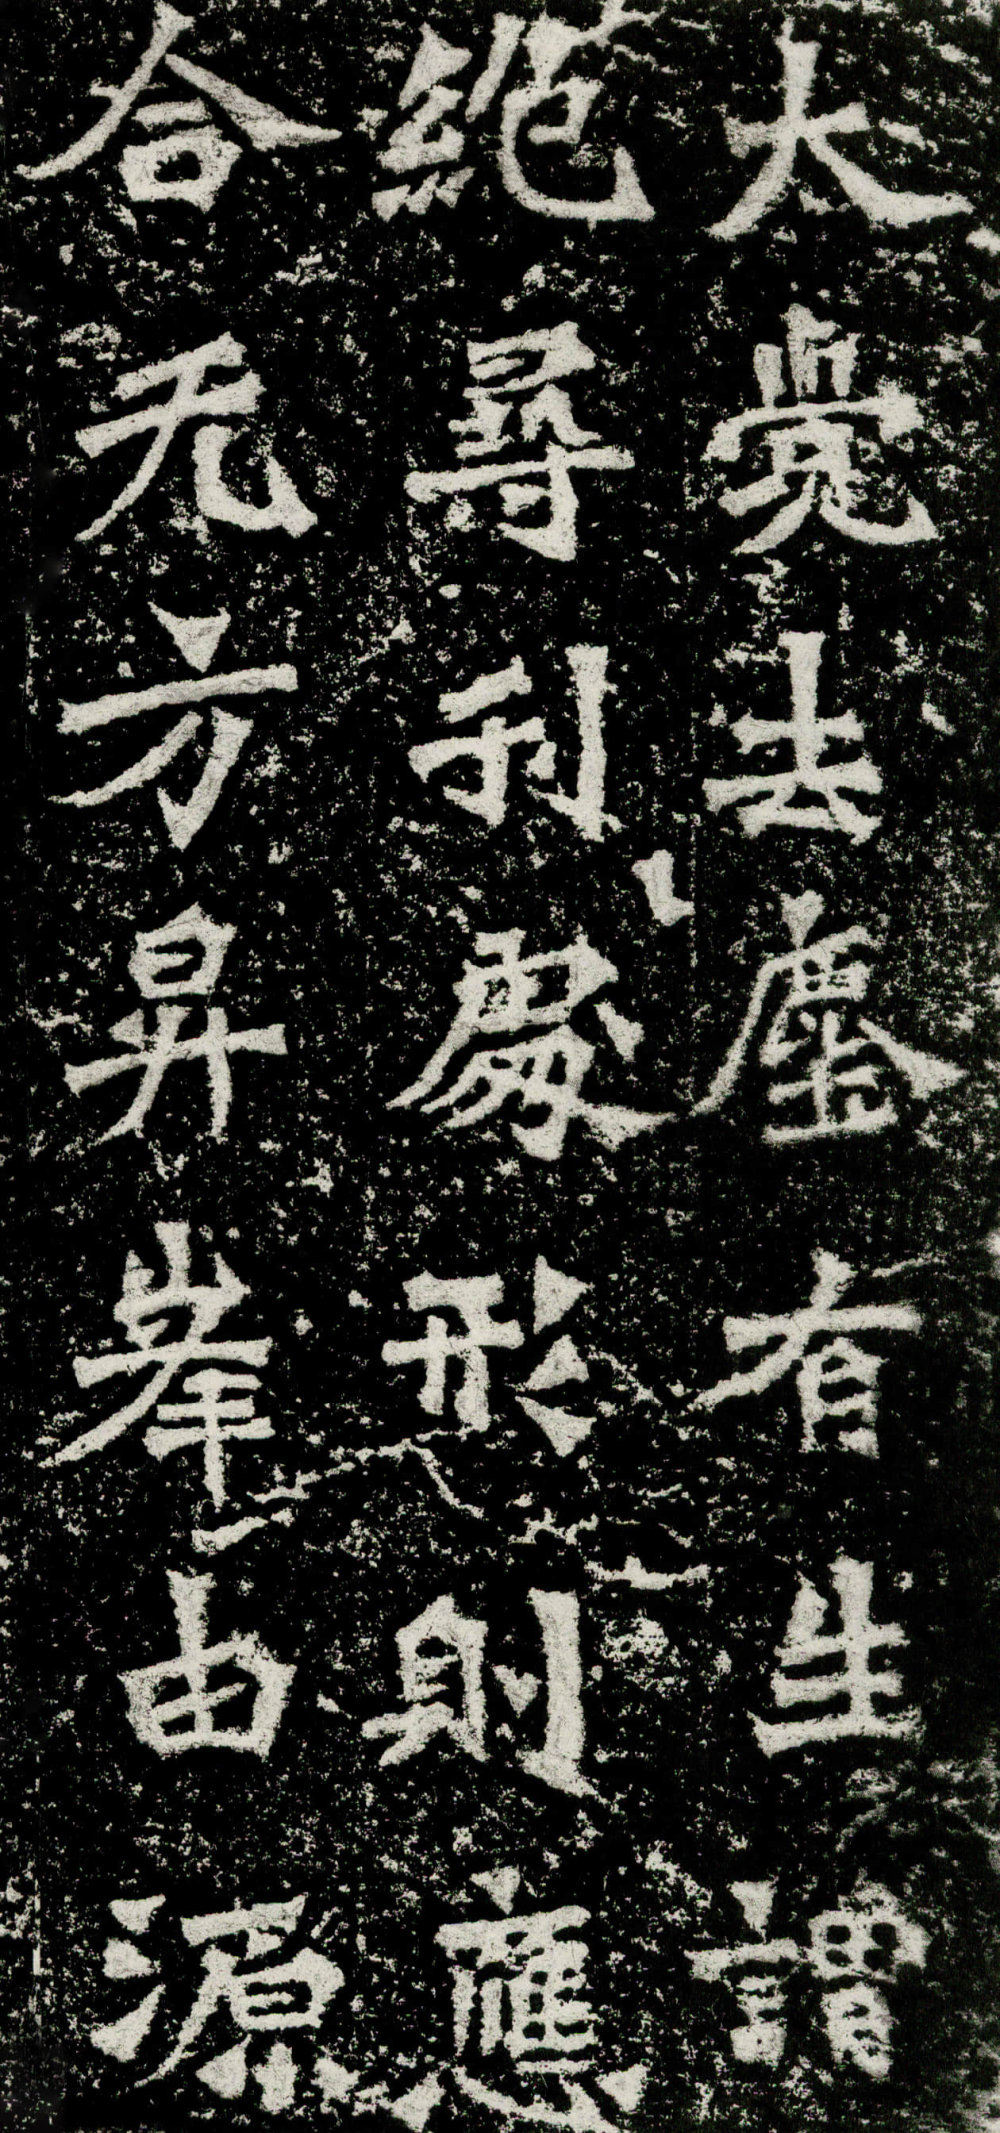 大覺去塵有生謂
絶尋刹處形則應
合无方昇峯由源